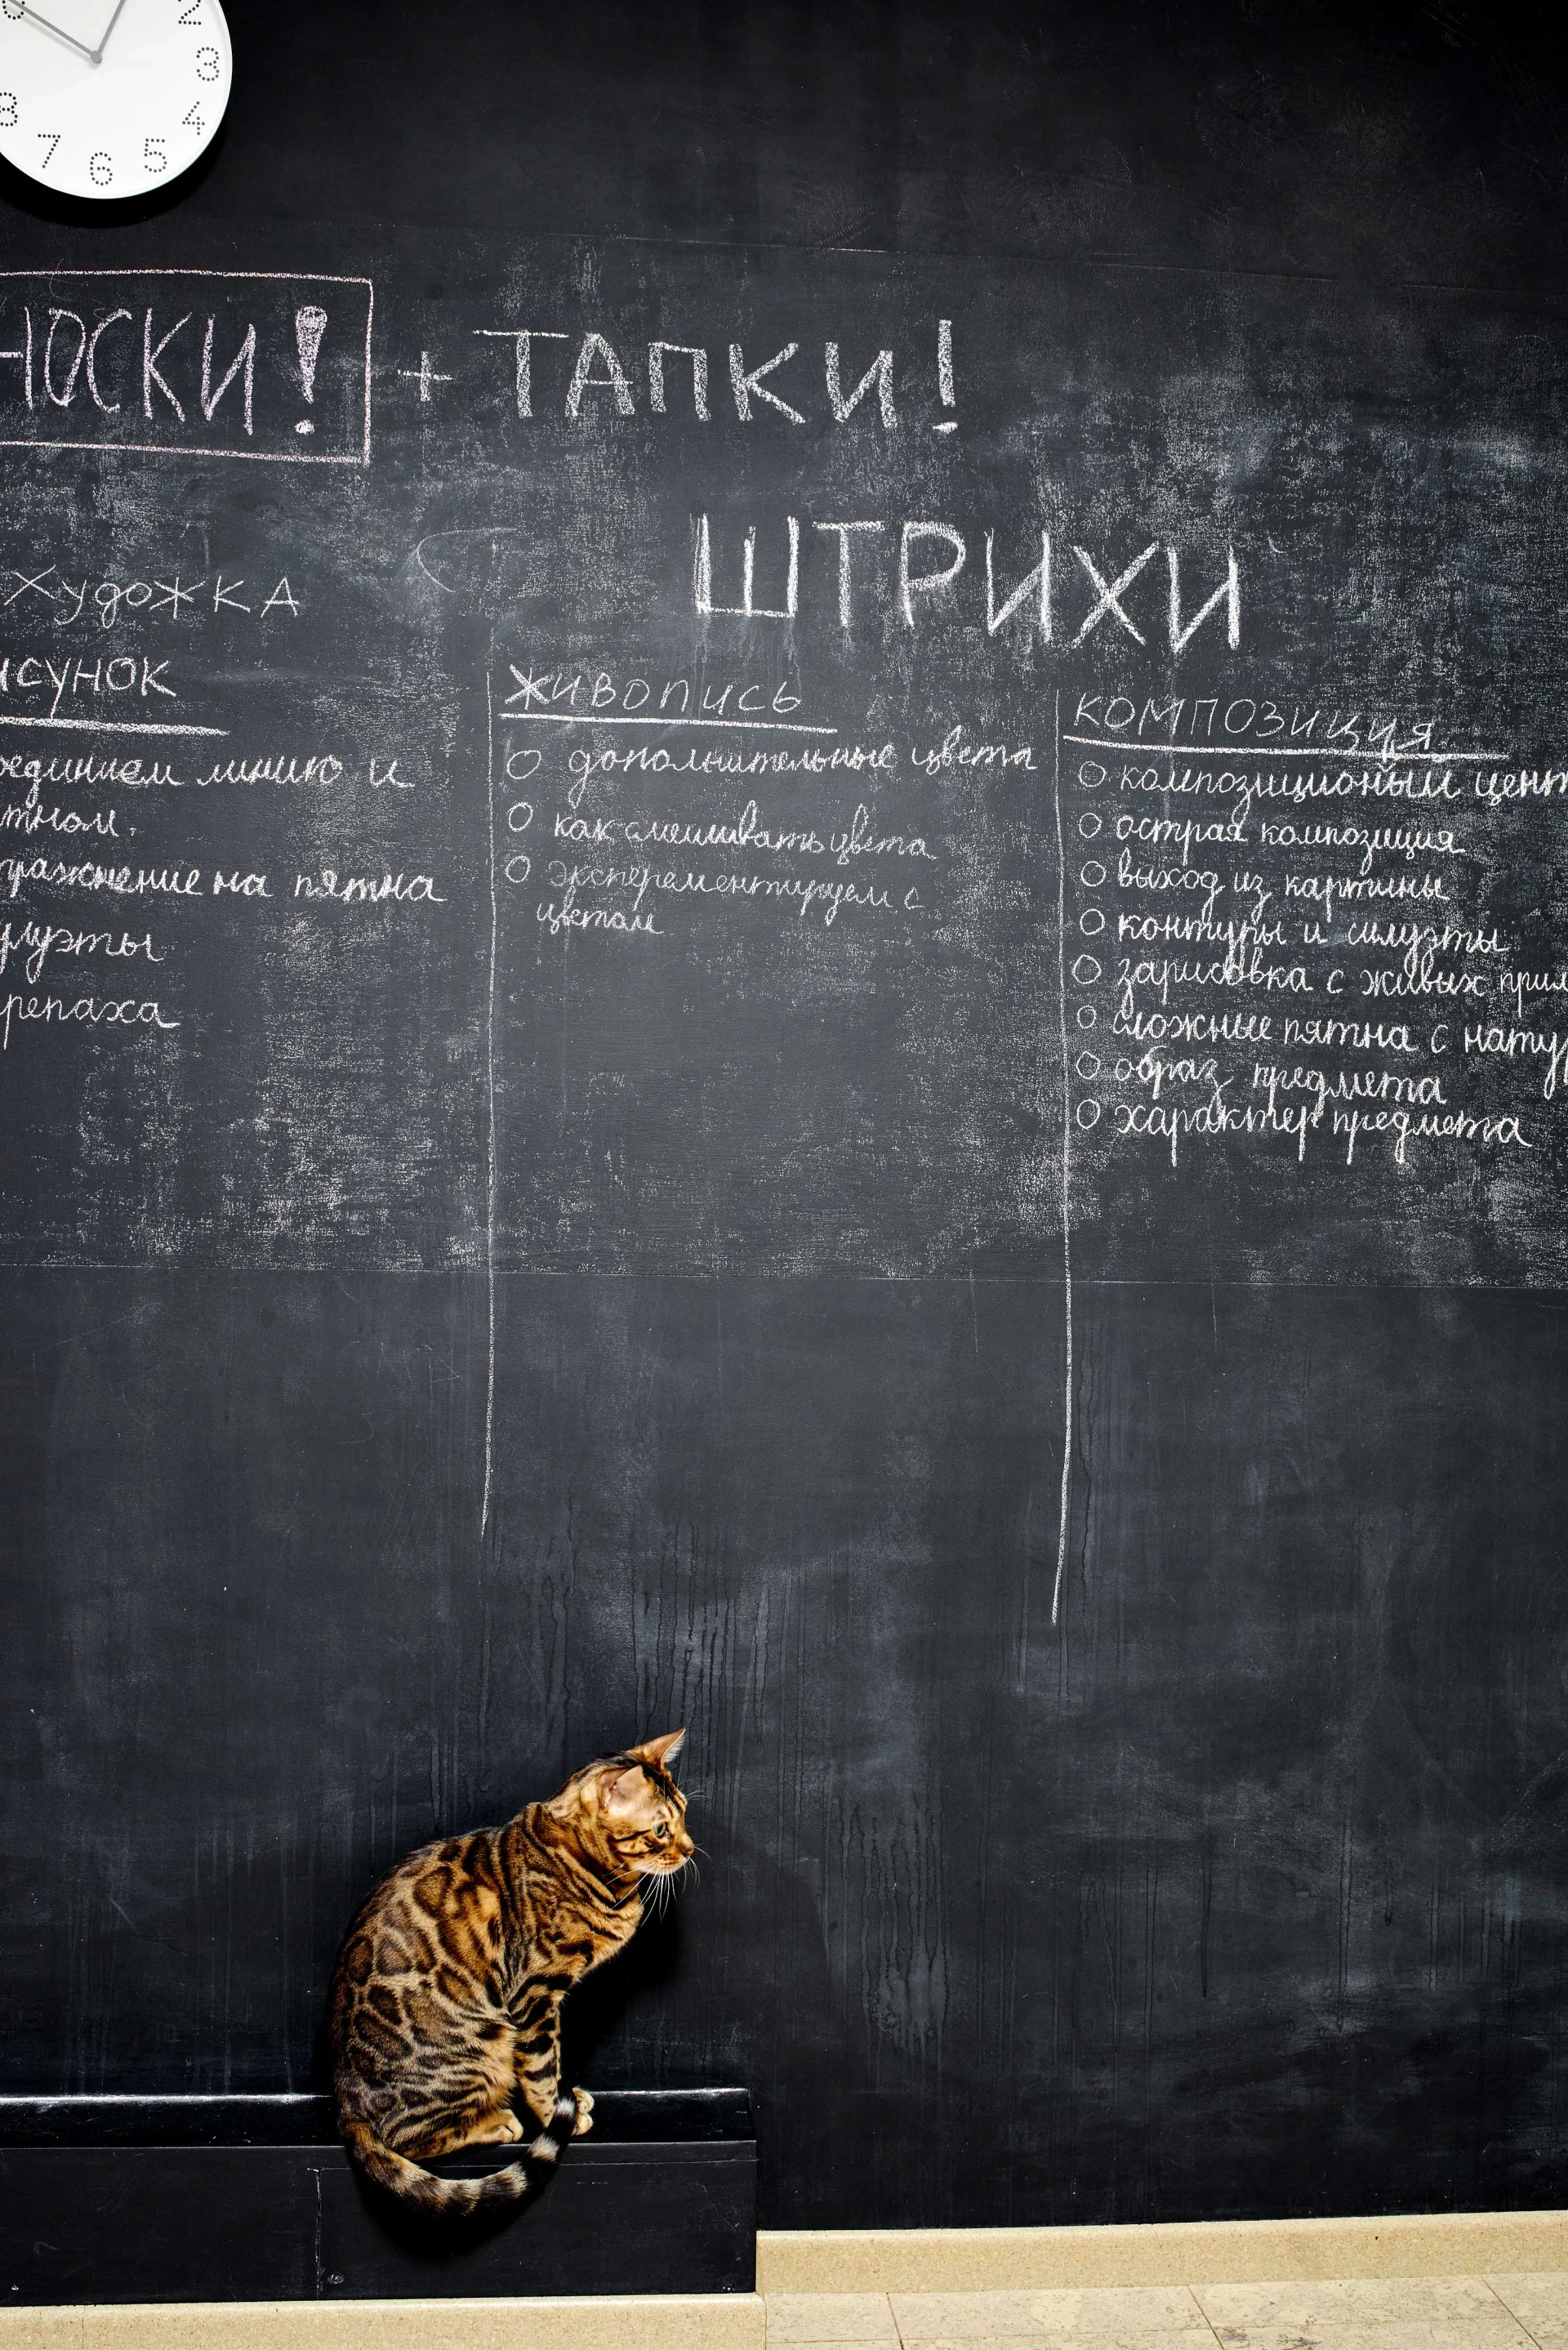 2
3
4
5
6
7
8
НОСКИ! + ТАПКИ!
ШТРИХИ
Художка
исунок
оединяем линию и
тном.
пражнение на пятна
луэты
репаха
живопись
дополнительные цвета
как смешивать цвета
эксперементируем с
цветом
композиция
композиционый цент
острая композиция
выход из картины
контуры и силуэты
зарисовка с живых прим
сложные пятна с нату
образ предмета
характер предмета